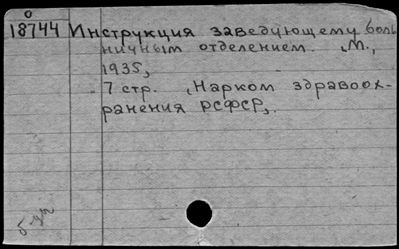 0
18744 Инструкция заведующему боль
ничным отделением. М.,
1935,
7 стр. (Нарком здравоох-
ранения РСФСР).